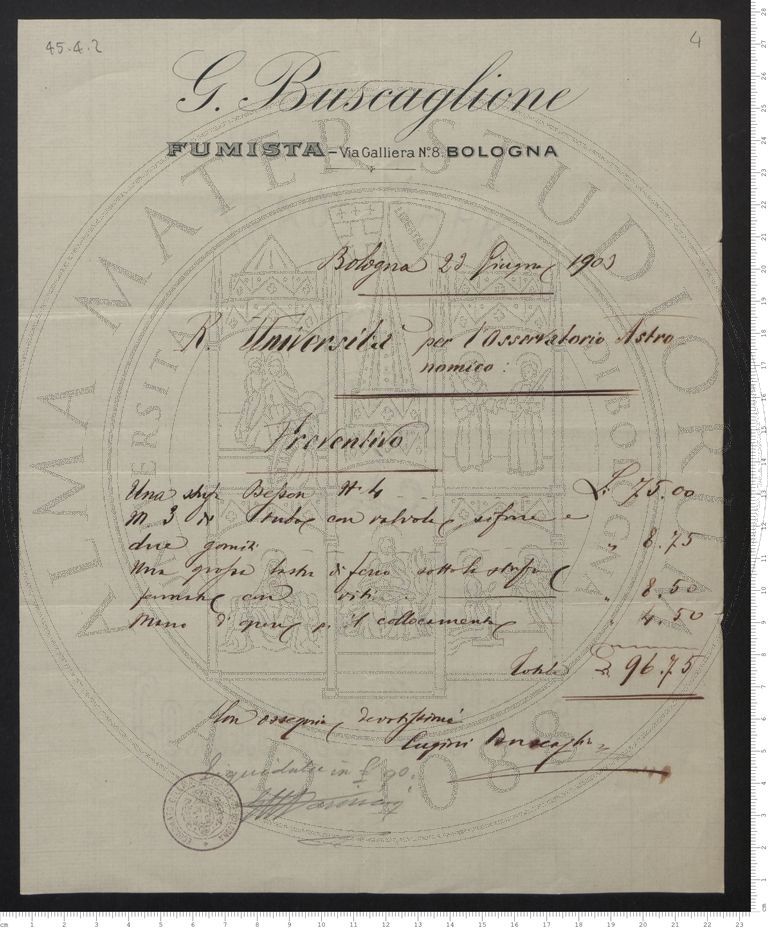 45.4.2
4
G. Buscaglione
FUMISTA - Via Galliera N.º 8. BOLOGNA
Bologna 23 Giugno 1903
R. Università per l'Osservatorio Astro
nomico:
Preventivo
Una stufa Besson N. 4 L. 75.00
M 3 di tubo con valvola, sifone e
due gomiti " 8.75
Una grossa lastra di ferro sotto la stufa
fermata con viti " 8.50
Mano d'opera p. il collocamento " 4.50
Totale L. 96.75
Con ossequi, devotissimo
Buscaglione
Liquidato in £ 90.
ALMA MATER STUDIORUM
A.D. 1088